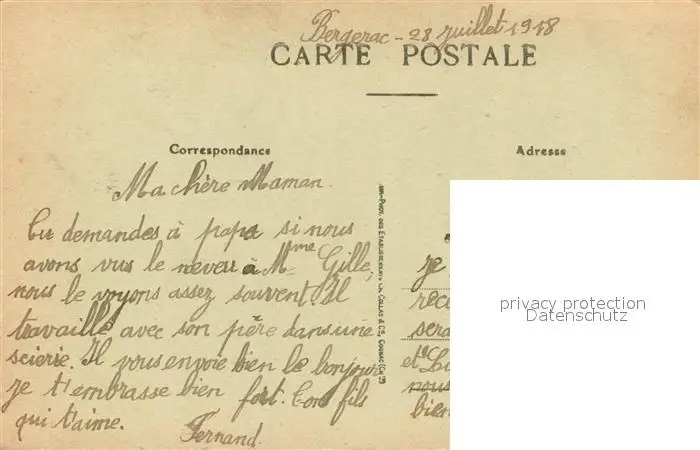 Bergerac - 28 juillet 1918
CARTE POSTALE
Correspondance
Adresse
Ma chère Maman.
Tu demandes à papa si nous
avons vus le neveu à Mme Gille,
nous le voyons assez souvent. Il
travaille avec son père dans une
scierie. Il vous envoie bien le bonjour
je t'embrasse bien fort. Ton fils
qui t'aime.
Fernand.
PHOT. DES ETABLISSEMENTS CH. COLLAS & Cie, COGNAC
je
reci
sera
et
nous
bien
privacy protection
Datenschutz